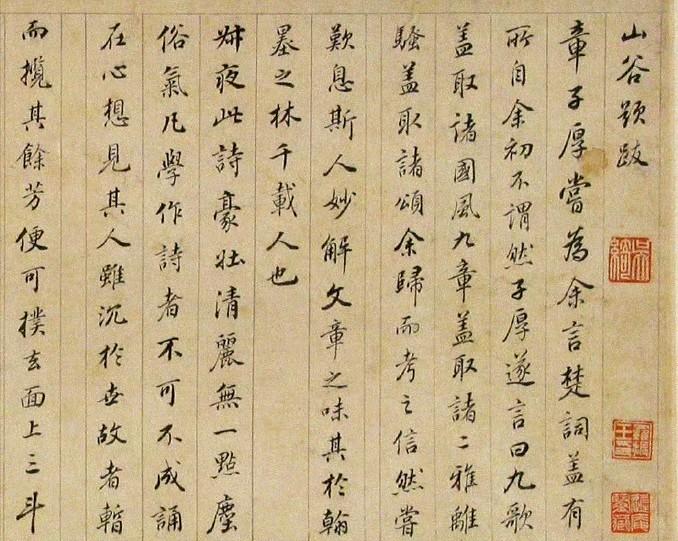 山谷題跋
章子厚嘗為余言楚詞蓋有
所自余初不謂然子厚遂言曰九歌
蓋取諸國風九章蓋取諸二雅離
騷蓋取諸頌余歸而考之信然嘗
歎息斯人妙解文章之味其於翰
墨之林千載人也
叔夜此詩豪壯清麗無一點塵
俗氣凡學作詩者不可不成誦
在心想見其人雖沉於世故者暫
而攬其餘芳便可撲去面上三斗